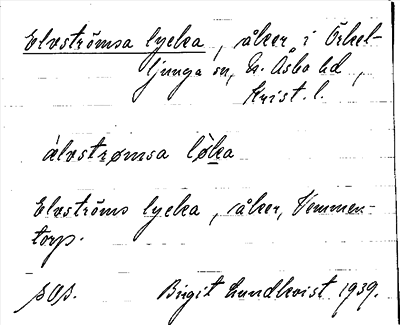 Elvströmsa lycka, åker i Örkel-
ljunga sn, N. Åsbo hd,
Krist. l.
älvstrømsa lǿka
Elvströms lycka, åker, Vemmen-
torp.
sOs.
Birgit Lundkvist 1939.